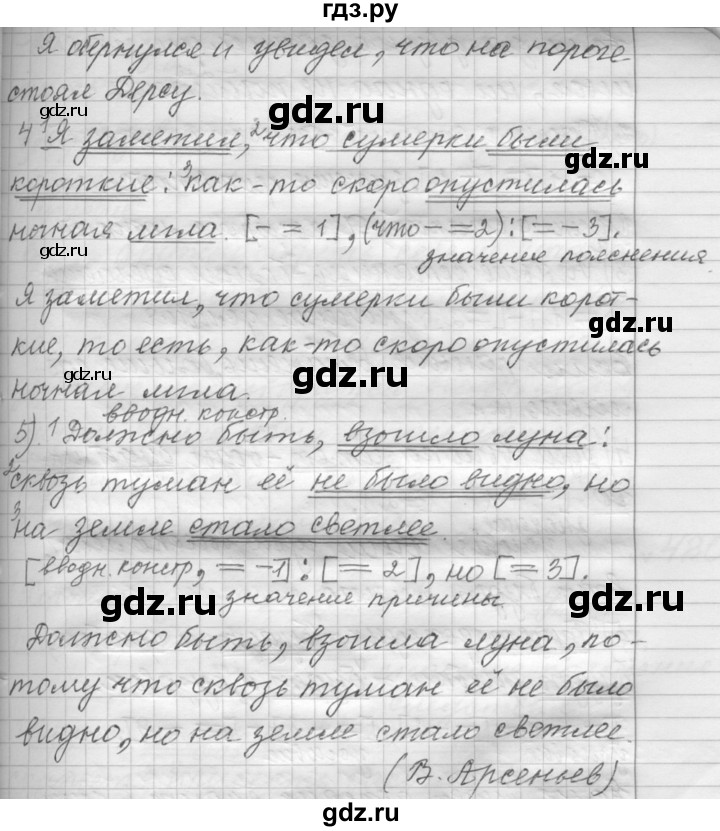 гдз.ру
Я обернулся и увидел, что на пороге
стоял Дерсу.
gdz.ru gdz.ru
4 ¹Я заметил, ²что сумерки были
gdz.ru
короткие: ³как-то скоро опустилась
ночная мгла. [- = 1], (что - = 2) : [= - 3].
gdz.ru
значение пояснения
Я заметил, что сумерки были корот-
кие, то есть, как-то скоро опустилась
gdz.ru gdz.ru
ночная мгла.
вводн. констр.
5) ¹Должно быть, взошло луна:
²сквозь туман её не было видно, но
³на земле стало светлее.
gdz.ru
[вводн. констр, = - 1] : [= 2], но [= 3].
gdz.ru gdz.ru
значение причины
Должно быть, взошла луна, по-
тому что сквозь туман её не было
видно, но на земле стало светлее.
gdz.ru
(В. Арсеньев)
gdz.ru
gdz.ru